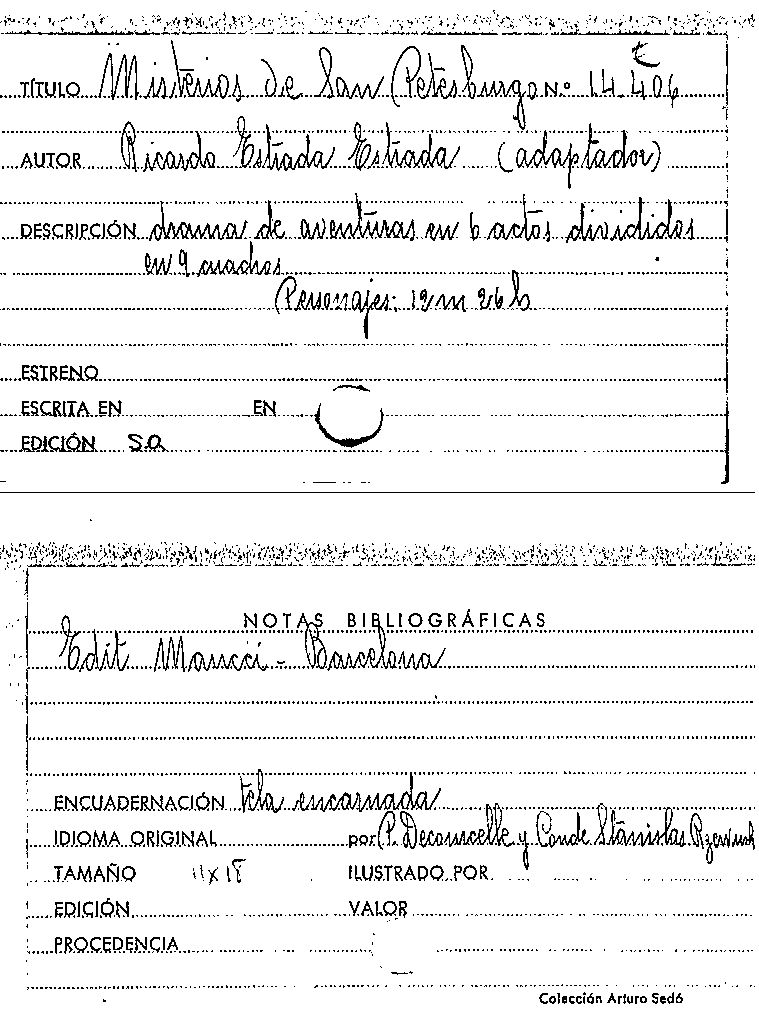 t
TÍTULO Misterios de San Petesburgo N.º 14.406
AUTOR Ricardo Estrada Estrada (adaptador)
DESCRIPCIÓN drama de aventuras en 6 actos divididos
en 9 cuadros
Personajes: 12 m 26 h
ESTRENO
ESCRITA EN EN
EDICIÓN S.a.
NOTAS BIBLIOGRÁFICAS
Edit Maucci - Barcelona
ENCUADERNACIÓN tela encarnada
IDIOMA ORIGINAL por P. Decourcelle y Conde Stanislas
TAMAÑO 11x18 ILUSTRADO POR
EDICIÓN VALOR
PROCEDENCIA
Colección Arturo Sedó